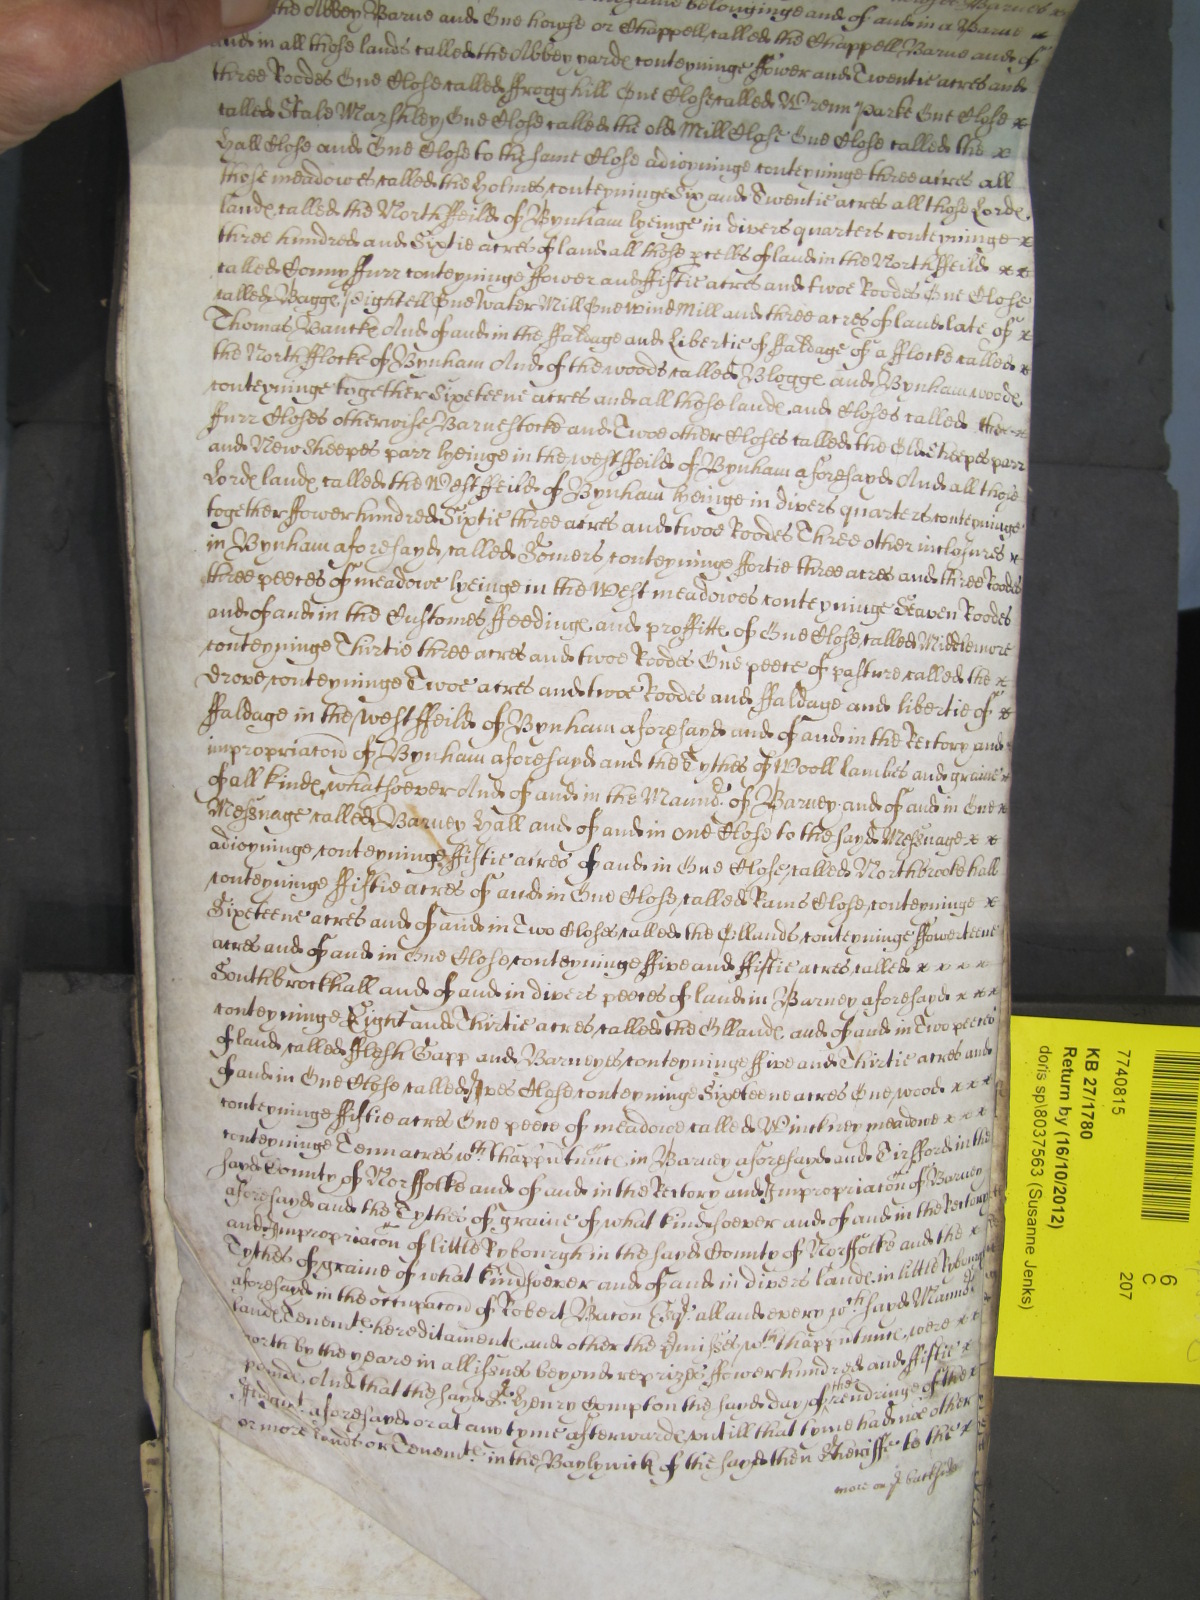 same belonginge and of and in a Barne
the Abbey Barne and One howse or Chappell called the Chappell Barne and of
and in all those lands called the Abbey yarde conteyninge ffower and Twentie acres and
three Roodes One Close called ffrogg hill One Close called Wrenn Parke One Close x
called Stale Marshley One Close called the old Mill Close One Close called the x
Hall Close and One Close to the same Close adioyninge conteyninge three acres all
those meadowes called the Holmes conteyninge Six and Twentie acres all those Lorde
lande called the North ffeild of Bynham lyeinge in divers quarters conteyninge x
three hundred and Sixtie acres of land all those pcells of land in the North ffeild x x
called Conny ffurr conteyninge ffower and ffiftie acres and twoe Roodes One Close
called Bagge Pightell One Water Mill One Wind Mill and three acres of land late of x
Thomas Bancke And of and in the ffaldage and Libertie of ffaldage of a fflocke called x
the North fflocke of Bynham And of the woods called Blogge and Bynham woode
conteyninge together Sixeteene acres and all those lande and Closes called the x
ffurr Closes otherwise Barnestocke and Twoe other Closes called the Old Sheepes parr
and New Sheepes parr lyeinge in the west ffeild of Bynham aforesayd And all those
Lorde lande called the West ffeild of Bynham lyeinge in divers quarters conteyninge
together ffower hundred Sixtie three acres and twoe Roodes Three other inclosures x
in Bynham aforesayd called Somers conteyninge ffortie three acres and three Roodes
three peeces of meadowe lyeinge in the West meadowes conteyninge Seaven Roodes
and of and in the Customes ffeedinge and proffitte of One Close called Middlemore
conteyninge Thirtie three acres and twoe Roodes One peece of pasture called the x
Drove conteyninge Twoe acres and twoe Roodes and ffaldage and libertie of x
ffaldage in the west ffeild of Bynham aforesayd and of and in the Rectory and
impropriacon of Bynham aforesayd and the Tythes of Wooll lambes and graine x
of all kinde whatsoever And of and in the Mannor of Barney and of and in One x
Messuage called Barney Hall and of and in one Close to the sayd Messuage x x
adioyninge conteyninge ffiftie acres of and in One Close called Northbrookehall
conteyninge ffiftie acres of and in One Close called Rams Close conteyninge x
Sixeteene acres and of and in Two Closes called the Ollands conteyninge ffowerteene
acres and of and in One Close conteyninge ffive and ffiftie acres called x x x x
Southbrockhall and of and in divers peeces of land in Barney aforesayd x x x
conteyninge Eight and Thirtie acres called the Ollande and of and in Two peeces
of land called fflesh Gapp and Barneyes conteyninge ffive and Thirtie acres and
of and in One Close called Ives Close conteyninge Sixeteene acres One wood x x x
conteyninge ffiftie acres One peece of meadowe called Winckney meadowe x x x
conteyninge Tenn acres wth thapptunce in Barney aforesayd and Tirfford in the
sayd County of Norffolke and of and in the Rectory and Impropriacon of Barney
aforesayd and the Tythes of graine of what kind soever and of and in the Rectory
and Impropriacon of little Rybourgh in the sayd County of Norffolke and the x
Tythes of graine of what kind soever and of and in divers lande in little Rybourgh
aforesayd in the occupacon of Robert Bacon Esqr all and every wch sayd Mannors
lande Tenemte hereditamente and other the pmisses wth thapptunce were x x
worth by the yeare in all issues beyond reprizes ffower hundred and ffiftie x
pounde And that the sayd Sr Henry Compton the sayd day of the rendringe of the x
Iudgmt aforesayd or at any tyme afterwarde untill that tyme had noe other
or more lands or Tenemte in the Baylywick of the sayd then Sheriffe to the x
more on ye backside
7740815
KB 27/1780
Return by (16/10/2012)
doris sp\8037563 (Susanne Jenks)
6
C
207